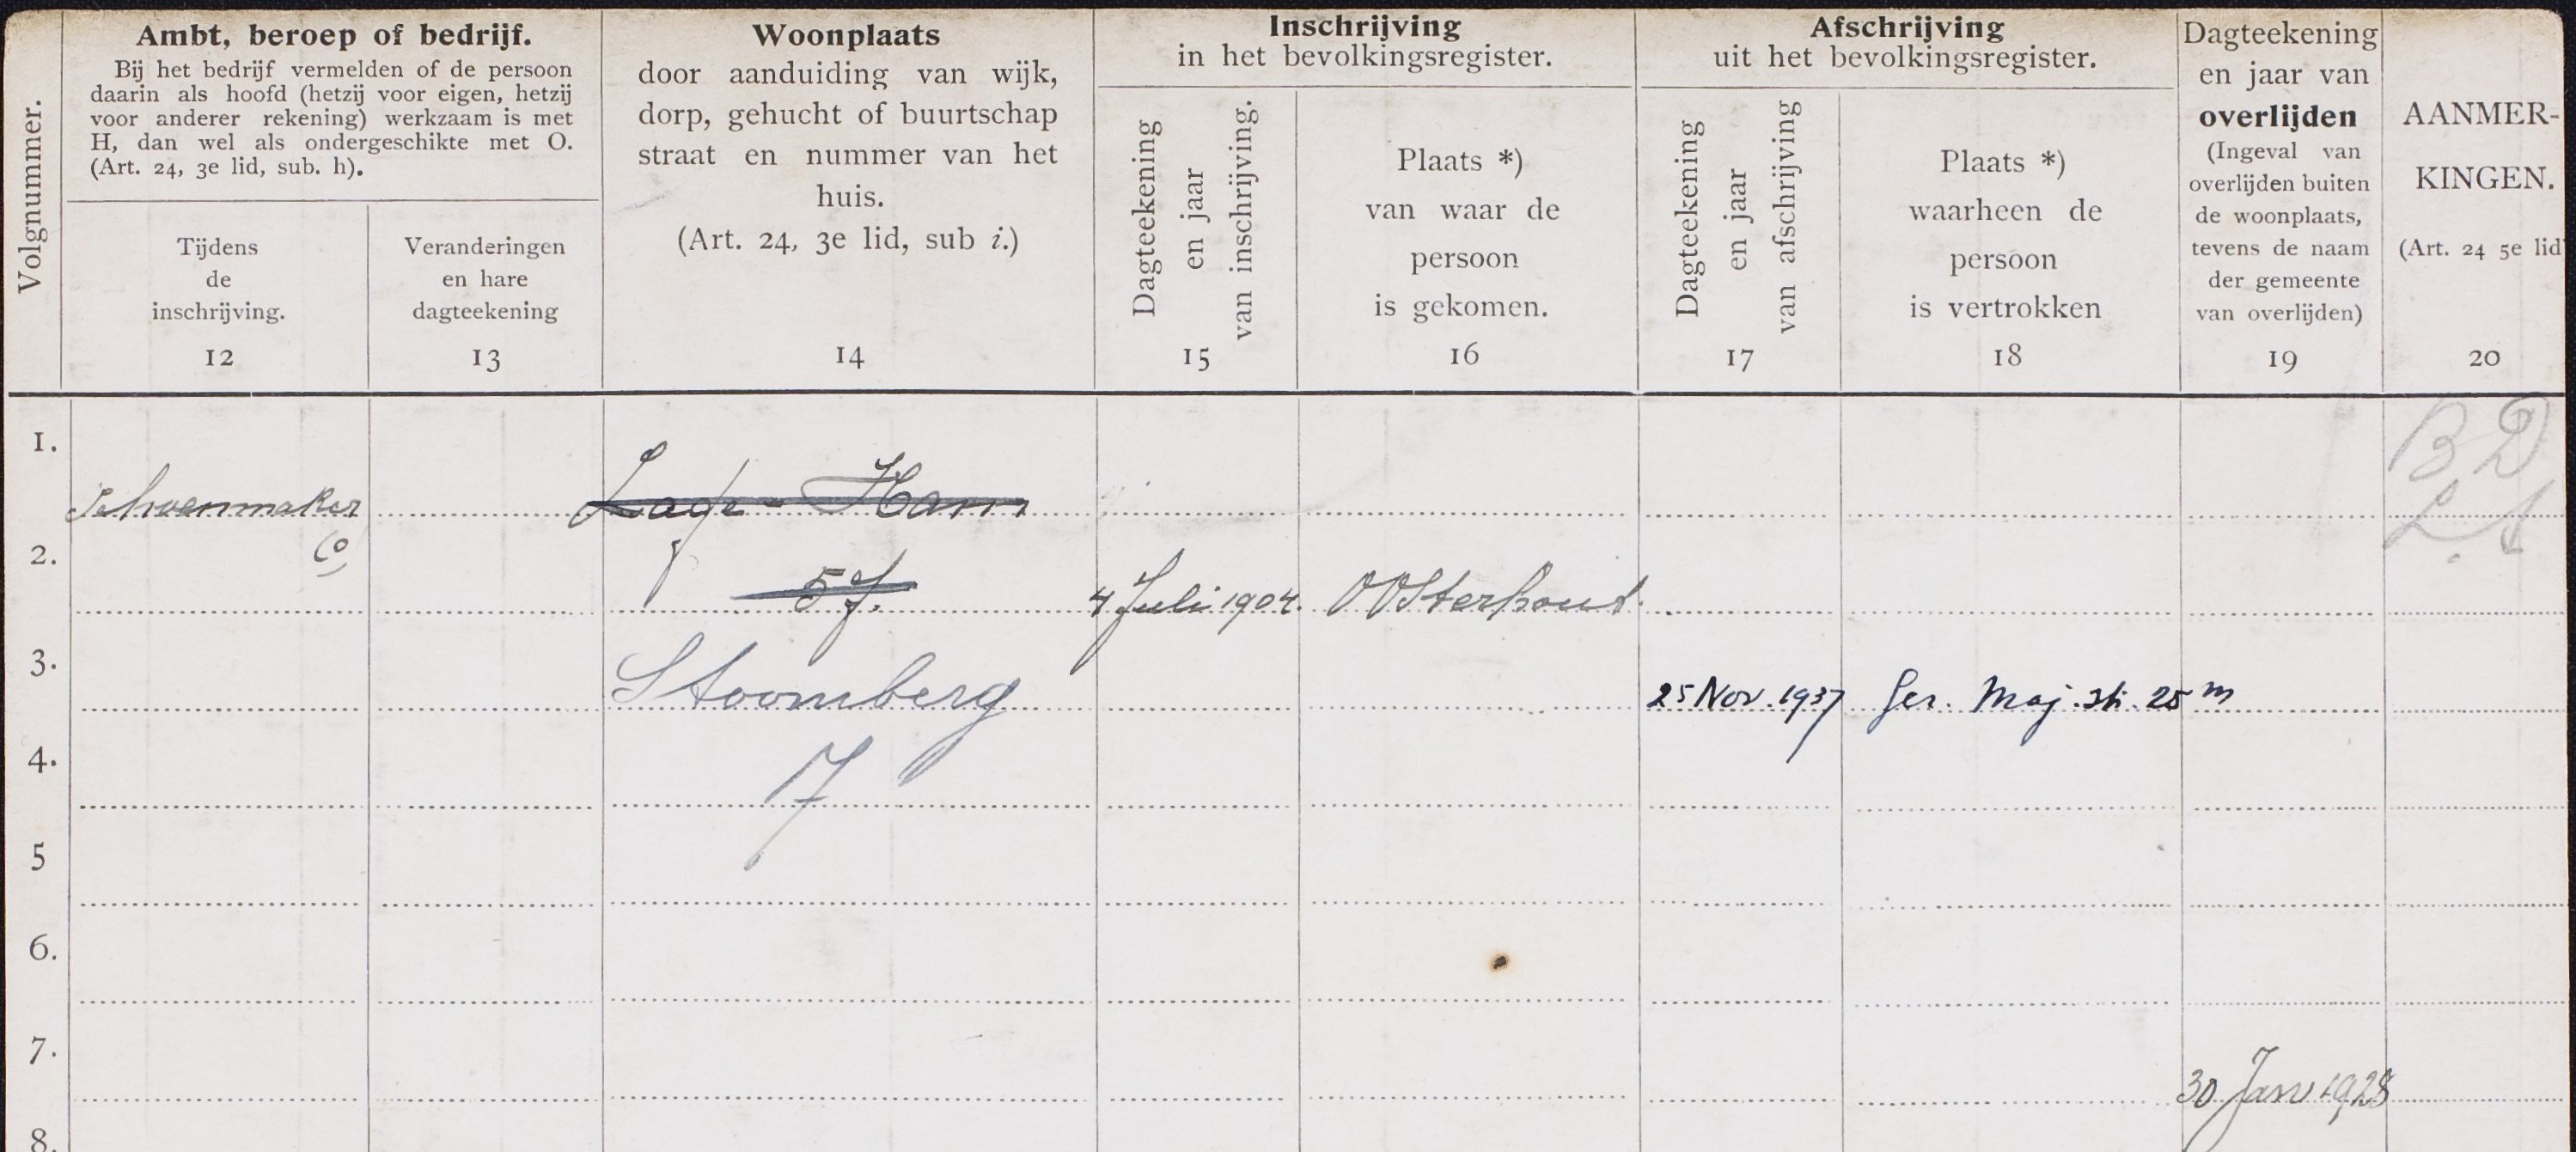 Volgnummer.
Ambt, beroep of bedrijf.
Bij het bedrijf vermelden of de persoon
daarin als hoofd (hetzij voor eigen, hetzij
voor anderer rekening) werkzaam is met
H, dan wel als ondergeschikte met O.
(Art. 24, 3e lid, sub. h).
Tijdens
de
inschrijving.
12
Veranderingen
en hare
dagteekening
13
Woonplaats
door aanduiding van wijk,
dorp, gehucht of buurtschap
straat en nummer van het
huis.
(Art. 24, 3e lid, sub i.)
14
Inschrijving
in het bevolkingsregister.
Dagteekening
en jaar
van inschrijving.
15
Plaats *)
van waar de
persoon
is gekomen.
16
Afschrijving
uit het bevolkingsregister.
Dagteekening
en jaar
van afschrijving
17
Plaats *)
waarheen de
persoon
is vertrokken
18
Dagteekening
en jaar van
overlijden
(Ingeval van
overlijden buiten
de woonplaats,
tevens de naam
der gemeente
van overlijden)
19
AANMER-
KINGEN.
(Art. 24 5e lid
20
1.
Schoenmaker
Lage-Ham
B D
2.
57.
4 Juli 1904.
Oosterhout.
3.
Stoomberg
25 Nov. 1937
Ger. Maj. str. 25 m
4.
7
5
6.
7.
30 Jan 1928
8.